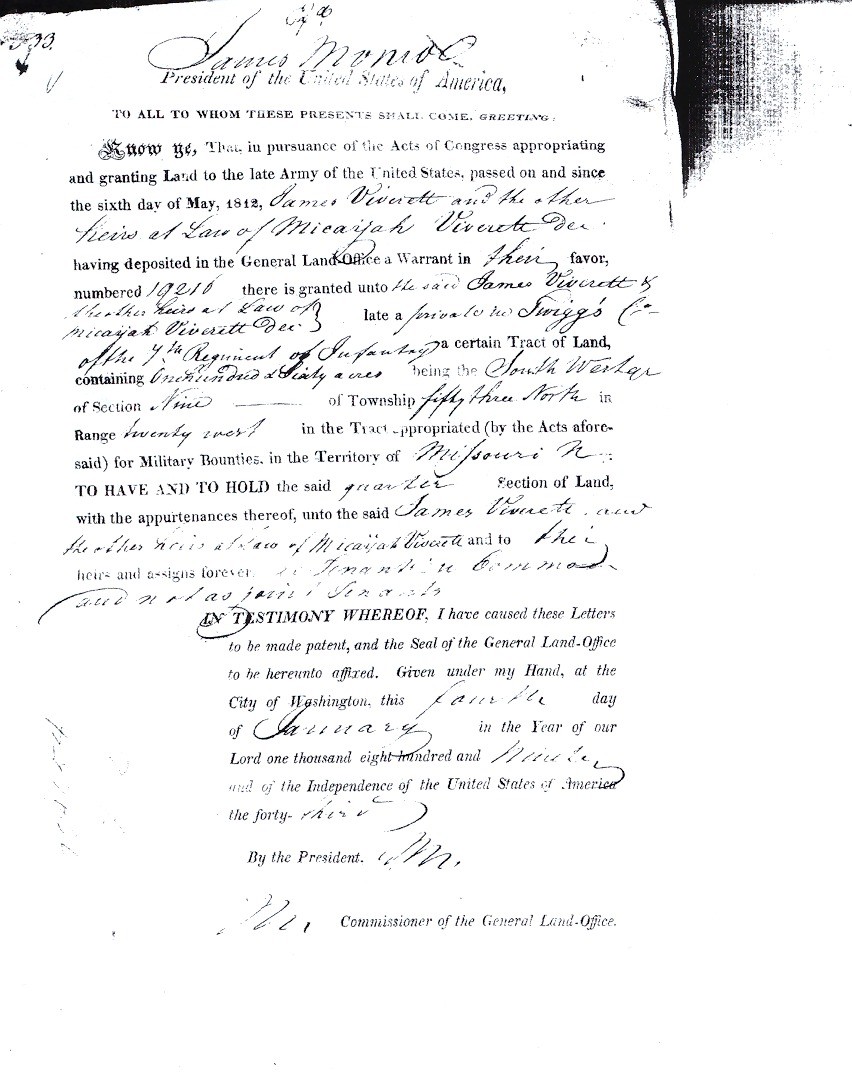 James Monroe
President of the United States of America,
TO ALL TO WHOM THESE PRESENTS SHALL COME, GREETING:
Know ye, That, in pursuance of the Acts of Congress appropriating
and granting Land to the late Army of the United States, passed on and since
the sixth day of May, 1812, James Viverett and the other
heirs at Law of Micaijah Viverett Dec
having deposited in the General Land-Office a Warrant in their favor,
numbered 19216 there is granted unto the said James Viverett &
the other heirs at Law of
Micaijah Viverett Dec } late a private in Twigg's Co
of the 7th Regiment of Infantry a certain Tract of Land,
containing One hundred & Sixty acres being the South West qr
of Section Nine of Township fifty three North in
Range twenty west in the Tract appropriated (by the Acts afore-
said) for Military Bounties, in the Territory of Missouri
TO HAVE AND TO HOLD the said quarter Section of Land,
with the appurtenances thereof, unto the said James Viverett and
the other heirs at Law of Micaijah Viverett and to their
heirs and assigns forever, as Tenants in Common
and not as joint Tenants
IN TESTIMONY WHEREOF, I have caused these Letters
to be made patent, and the Seal of the General Land-Office
to be hereunto affixed. Given under my Hand, at the
City of Washington, this fourth day
of January in the Year of our
Lord one thousand eight hundred and
and of the Independence of the United States of America
the forty-third
By the President. J M.
Commissioner of the General Land-Office.